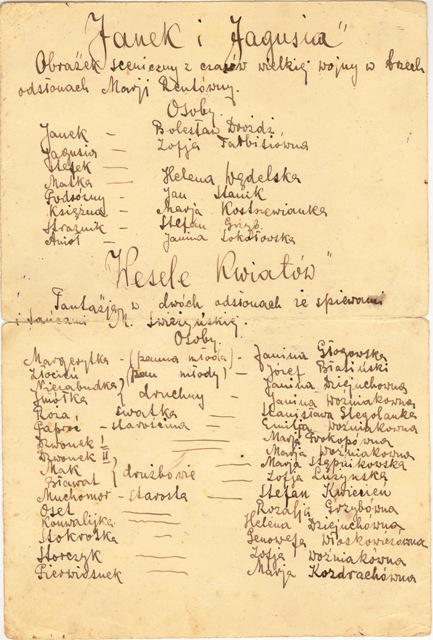 "Janek i Jagusia"
Obrazek sceniczny z czasów wielkiej wojny w trzech
odsłonach Marji Rentówny.
Osoby.
Janek — Bolesław Drozdź,
Jagusia — Zofja
Stefek —
Matka — Helena Wędelska
Podsózny — Jan Stanik
Księżna — Marja Kostrzewianka
Strażnik — Stefan
Anioł — Janina Sokołowska
"Wesele Kwiatów"
Fantazja w dwóch odsłonach ze śpiewami
i tańcami M. Świeżyńskiej.
Osoby.
Margerytka — (panna młoda) — Janina Głogowska
Złocień (pan młody) — Józef Bialiński
Niezabudka } druchny — Janina Dziejuchowna
Smółka — Janina Woźniakówna
Róża, swatka — Stanisława
Paproć — starościna — Emilja Woźniakowna
Dzwonek I — Marja Prokopówna
Dzwonek II — Marja Woźniakowna
Mak } drużbowie — Marja Stępnikowska
Bławat — Zofja Łużynska
Muchomor — starosta — Stefan Kwiecień
Oset — Rozalja Grzybówna
Konwalijka — Helena Dziejuchówna
Stokrotka — Genowefa Włoskowiczówna
Storczyk — Zofja Woźniakówna
Pierwiosnek — Marja Kozdrachówna